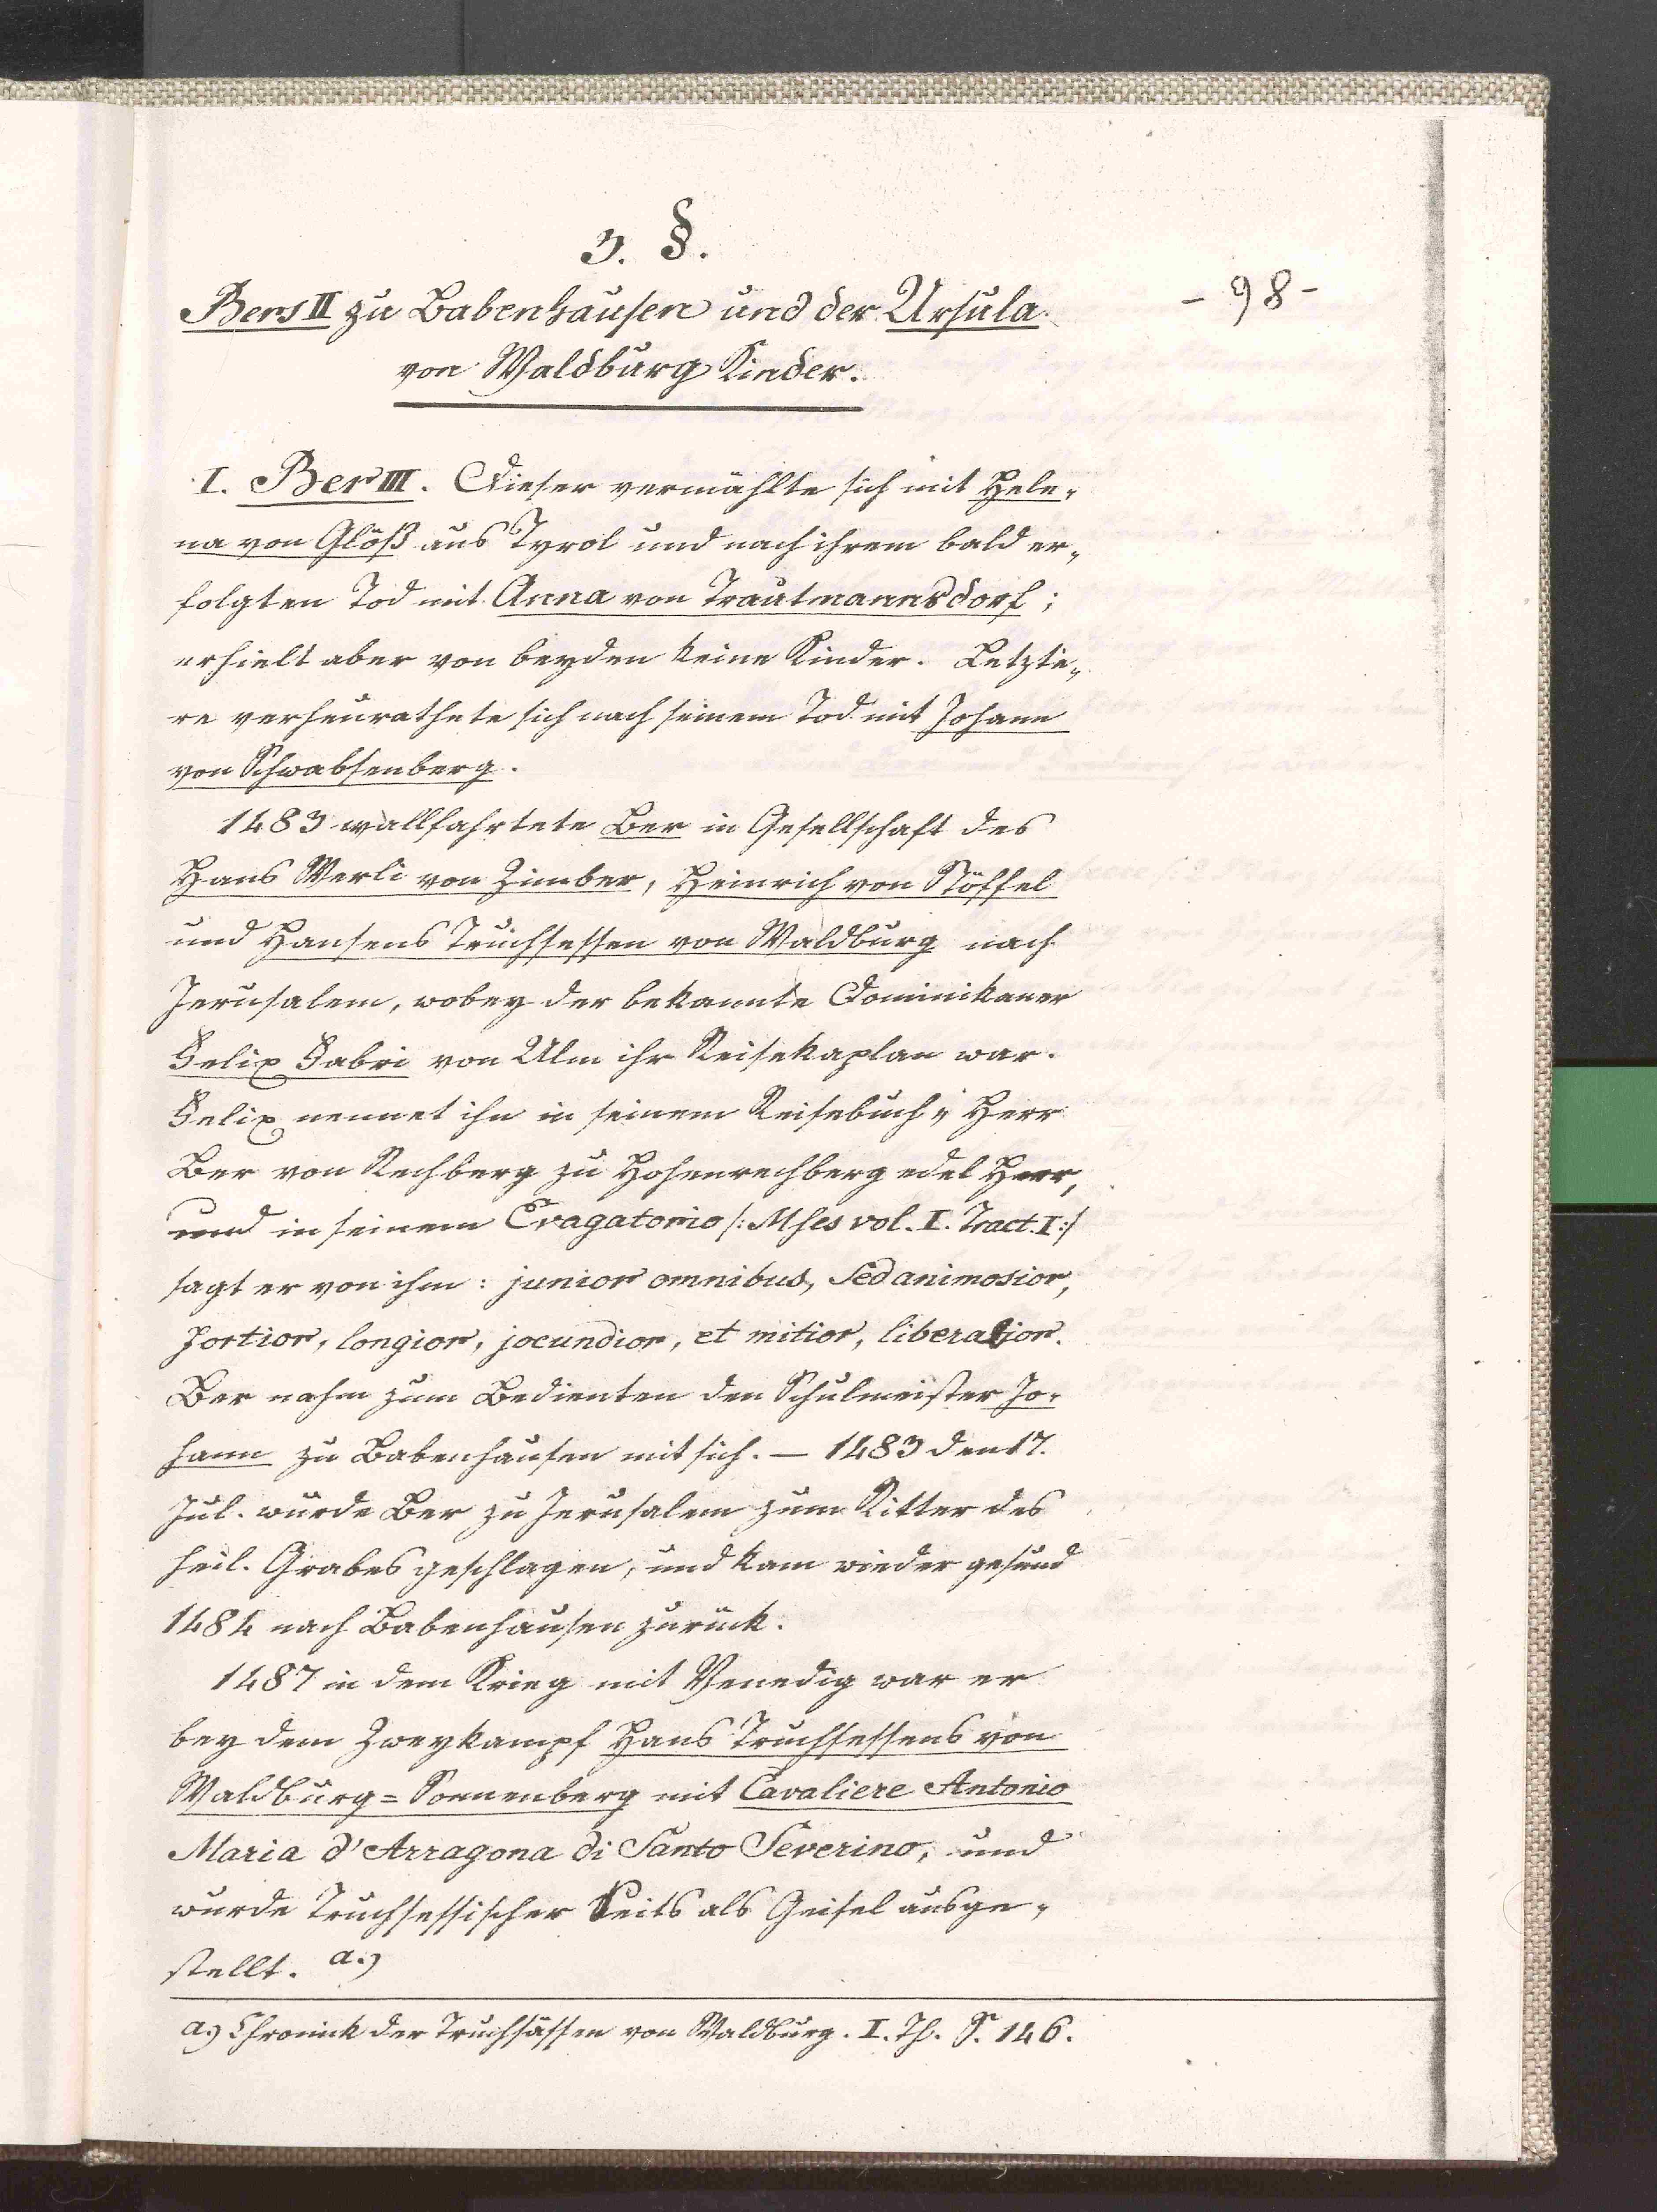 3. §.
- 98 -
Bers II zu Babenhausen und der Ursula
von Waldburg Kinder.
I. Ber III. Dieser vermählte sich mit Hele-
na von Glöß aus Tyrol und nach ihrem bald er-
folgten Tod mit Anna von Trautmannsdorf;
erhielt aber von beyden keine Kinder. Letzte-
re verheurathete sich nach seinem Tod mit Johann
von Schwabsenberg.
1483 wallfahrtete Ber in Gesellschaft des
Hans Werli von Zimber, Heinrich von Stöffel
und Hansens Truchsessen von Waldburg nach
Jerusalem, wobey der bekannte Dominikaner
Felix Fabri von Ulm ihr Reisekaplan war.
Felix nennet ihn in seinem Reisebuch „Herr
Ber von Rechberg zu Hohenrechberg edel Herr,
und in seinem Evagatorio /: Mses vol. I. Tract. I :/
sagt er von ihm: junior omnibus, sed animosior,
fortior, longior, jocundior, et mitior, liberalior.
Ber nahm zum Bedienten den Schulmeister Jo-
hann zu Babenhausen mit sich. — 1483 den 17.
Jul. wurde Ber zu Jerusalem zum Ritter des
heil. Grabes geschlagen, und kam wieder gesund
1484 nach Babenhausen zurück.
1487 in dem Krieg mit Venedig war er
bey dem Zweykampf Hans Truchsessens von
Waldburg=Sonnenberg mit Cavaliere Antonio
Maria d'Arragona di Santo Severino, und
wurde Truchsessischer Seits als Geisel ausge-
stellt. a.)
a.) Chronick der Truchsässen von Waldburg. I. Th. S. 146.